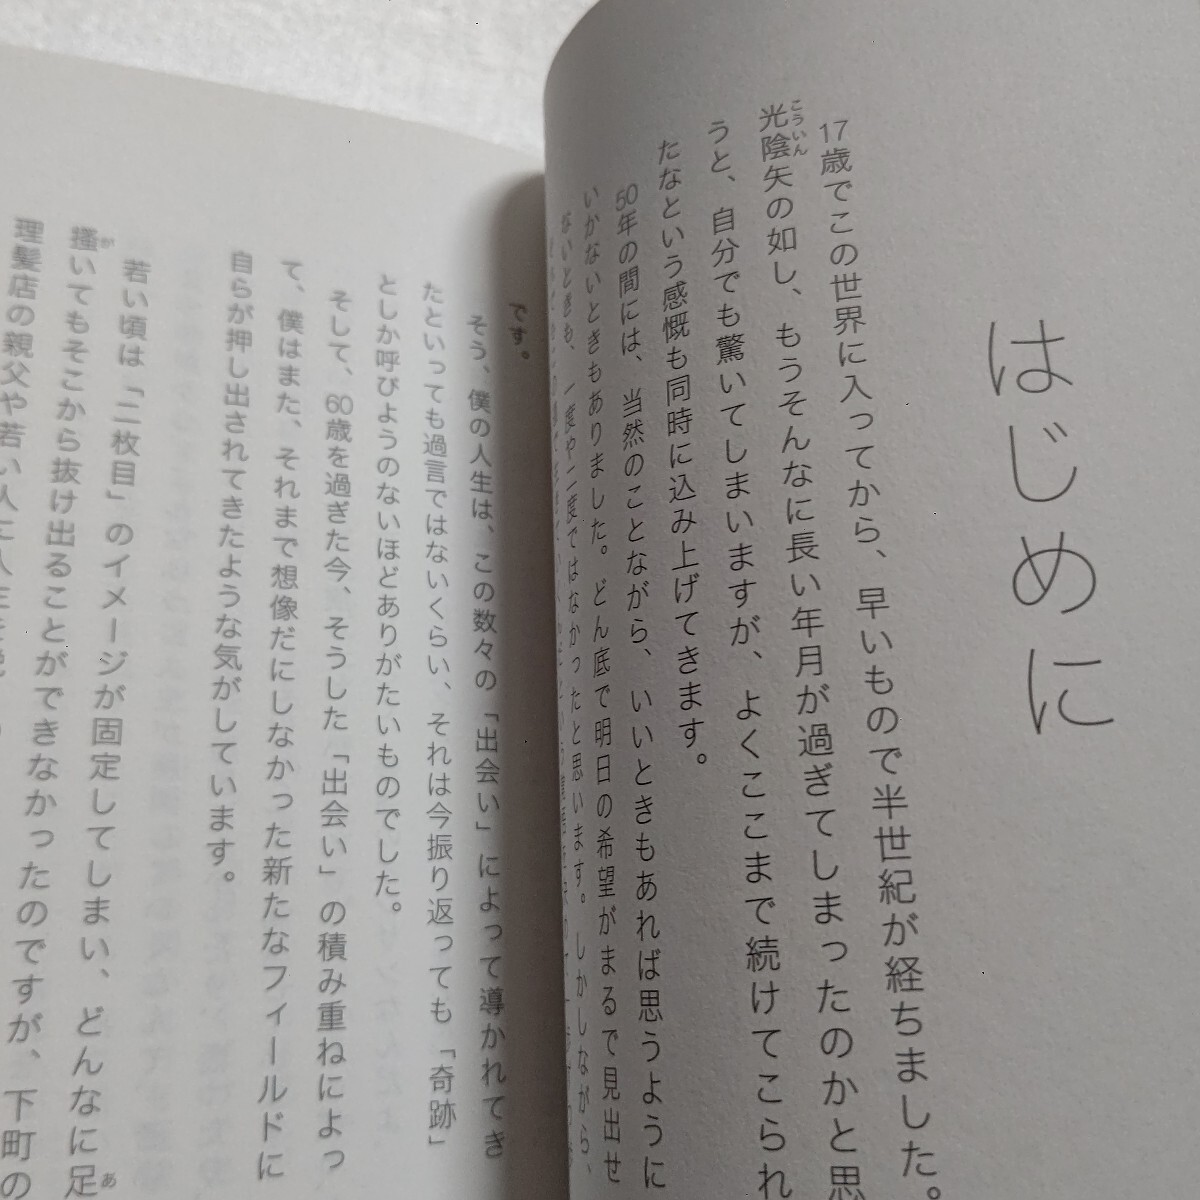 はじめに
17歳でこの世界に入ってから、早いもので半世紀が経ちました。
光陰矢の如し、もうそんなに長い年月が過ぎてしまったのかと思
こういん
うと、自分でも驚いてしまいますが、よくここまで続けてこられ
たなという感慨も同時に込み上げてきます。
50年の間には、当然のことながら、いいときもあれば思うように
いかないときもありました。どん底で明日の希望がまるで見出せ
ないときも、一度や二度ではなかったと思います。しかしながら、
です。
そう、僕の人生は、この数々の「出会い」によって導かれてき
たといっても過言ではないくらい、それは今振り返っても「奇跡」
としか呼びようのないほどありがたいものでした。
そして、60歳を過ぎた今、そうした「出会い」の積み重ねによっ
て、僕はまた、それまで想像だにしなかった新たなフィールドに
自らが押し出されてきたような気がしています。
若い頃は「二枚目」のイメージが固定してしまい、どんなに足
あ
掻いてもそこから抜け出ることができなかったのですが、下町の
が
理髪店の親父や若い人に人生を